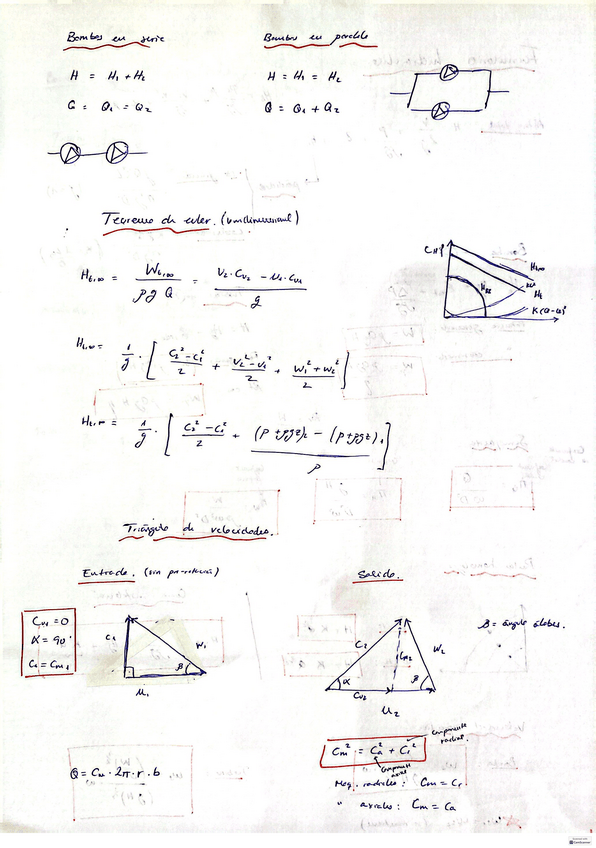 Bombas en serie
H = H1 + H2
Q = Q1 = Q2
Bombas en paralelo
H = H1 = H2
Q = Q1 + Q2
Teorema de euler. (unidimensional)
Ht,∞ = Wt,∞ / ρ g Q = U2 · Cu2 − U1 · Cu1 / g
Ht,∞ = 1/g · [ C2² − C1² / 2 + U2² − U1² / 2 + W1² + W2² / 2 ]
Ht,∞ = 1/g · [ C2² − C1² / 2 + (P + ρgz)2 − (P + ρgz)1 / ρ ]
Ht,∞
Ht
K(Q-Q)²
Triángulo de velocidades.
Entrada. (sin pre-rotación)
Cu1 = 0
α = 90°
C1 = Cm1
C1
W1
β
U1
Salida.
C2
Cm2
W2
α
β
Cu2
U2
β = ángulo álabes.
Cm² = Ca² + Cr²
componente radial.
componente axial
Maq. radiales: Cm = Cr
" axiales: Cm = Ca
Q = Cm · 2π · r · b
CamScanner